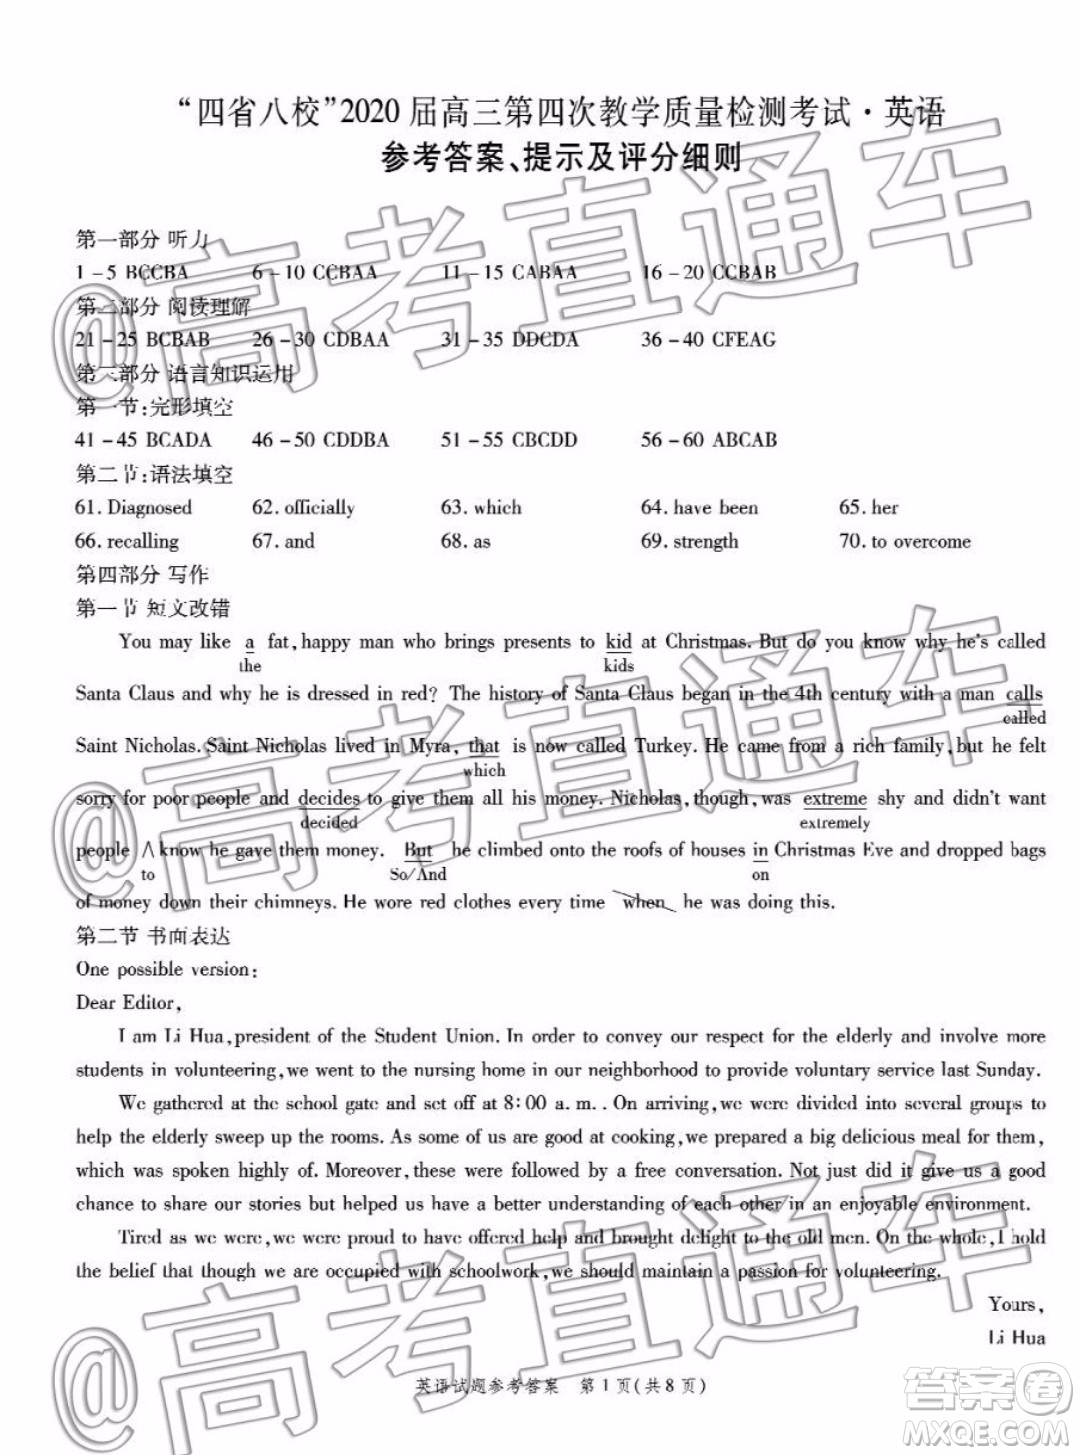 “四省八校”2020届高三第四次教学质量检测考试·英语
参考答案、提示及评分细则
第一部分 听力
1-5 BCCBA 6-10 CCBAA 11-15 CABAA 16-20 CCBAB
第二部分 阅读理解
21-25 BCBAB 26-30 CDBAA 31-35 DDCDA 36-40 CFEAG
第三部分 语言知识运用
第一节:完形填空
41-45 BCADA 46-50 CDDBA 51-55 CBCDD 56-60 ABCAB
第二节:语法填空
61. Diagnosed 62. officially 63. which 64. have been 65. her
66. recalling 67. and 68. as 69. strength 70. to overcome
第四部分 写作
第一节 短文改错
You may like a fat, happy man who brings presents to kid at Christmas. But do you know why he's called
the kids
Santa Claus and why he is dressed in red? The history of Santa Claus began in the 4th century with a man calls
called
Saint Nicholas. Saint Nicholas lived in Myra, that is now called Turkey. He came from a rich family, but he felt
which
sorry for poor people and decides to give them all his money. Nicholas, though, was extreme shy and didn't want
decided extremely
people ∧ know he gave them money. But he climbed onto the roofs of houses in Christmas Eve and dropped bags
to So/And on
of money down their chimneys. He wore red clothes every time when he was doing this.
第二节 书面表达
One possible version:
Dear Editor,
I am Li Hua, president of the Student Union. In order to convey our respect for the elderly and involve more
students in volunteering, we went to the nursing home in our neighborhood to provide voluntary service last Sunday.
We gathered at the school gate and set off at 8:00 a. m.. On arriving, we were divided into several groups to
help the elderly sweep up the rooms. As some of us are good at cooking, we prepared a big delicious meal for them,
which was spoken highly of. Moreover, these were followed by a free conversation. Not just did it give us a good
chance to share our stories but helped us have a better understanding of each other in an enjoyable environment.
Tired as we were, we were proud to have offered help and brought delight to the old men. On the whole, I hold
the belief that though we are occupied with schoolwork, we should maintain a passion for volunteering.
Yours,
Li Hua
英语试题参考答案 第1页(共8页)
@高考直通车
@高考直通车
@高考直通车
答案卷
MXQE.COM